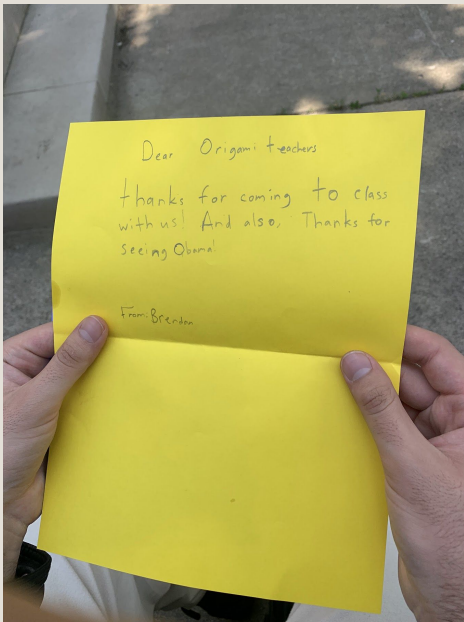 Dear Origami teachers
thanks for coming to class
with us! And also, Thanks for
seeing Obama!
From: Brendan